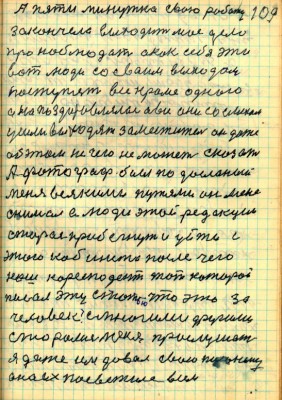 А пяти минутка свою работу 109
закончела выходит мое дело
пронаблюдат скак себя эти
вот люди со сваим выходом
поступят все краме одного
она поздировлялас а вои они со смехом
ушли выходят заместител он даже
обэтом не чего не может сказат
А фотограф был по досланий
меня всякими путями он мене
снимал а люди этой редакции
старалс прибегнут и уйти с
этого кабинита после чего
наш коресподент тот которой
писал эту статю что это за
человек? Смногими другими
сторомемя прослушат
я даже им довал свою
она их посветила всем